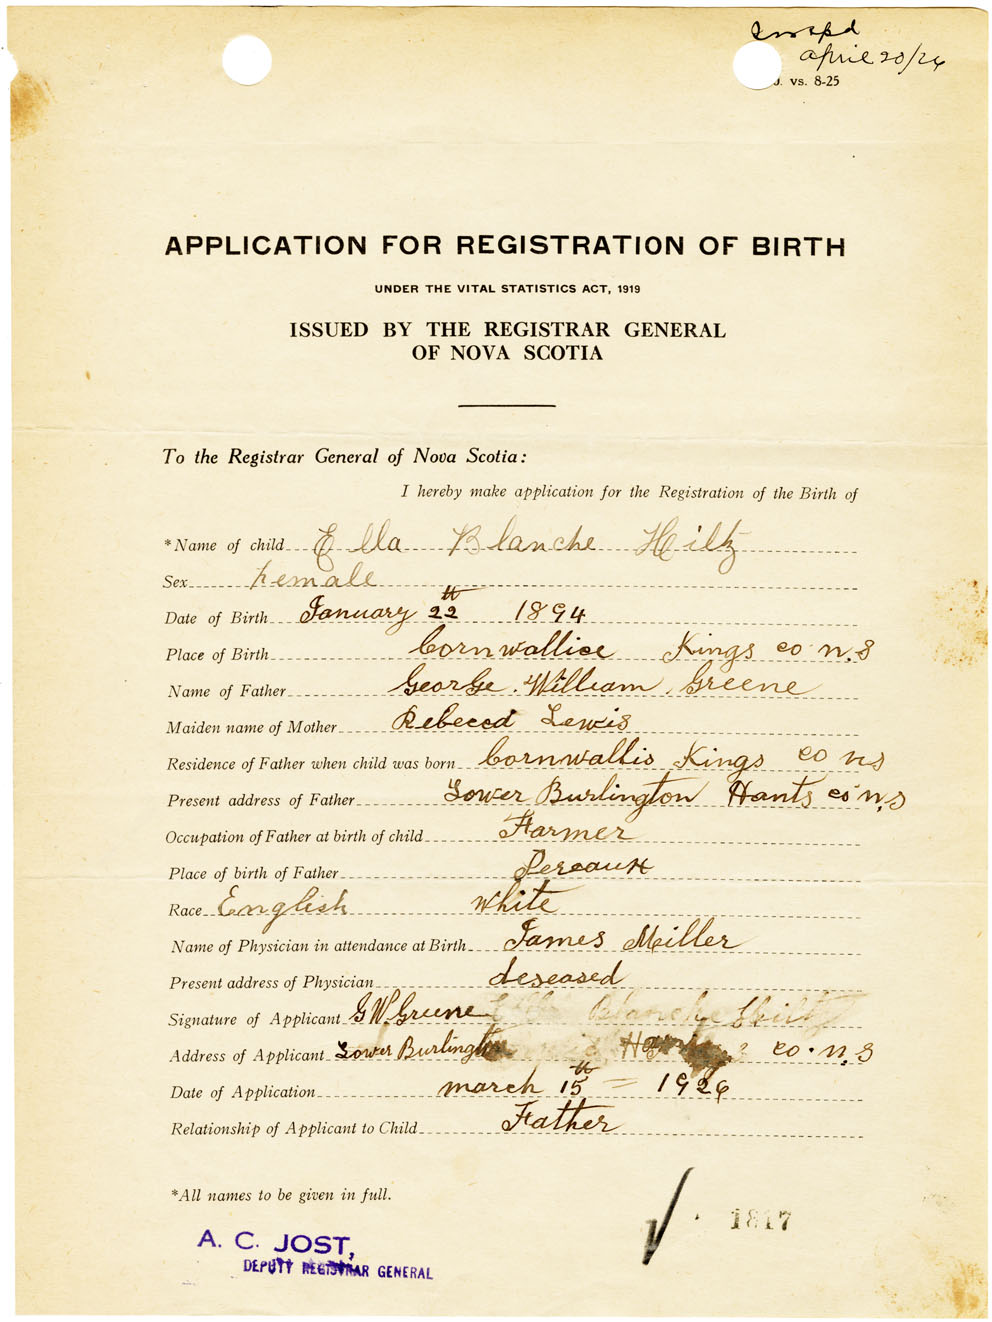 april 20/26
vs. 8-25
APPLICATION FOR REGISTRATION OF BIRTH
UNDER THE VITAL STATISTICS ACT, 1919
ISSUED BY THE REGISTRAR GENERAL
OF NOVA SCOTIA
To the Registrar General of Nova Scotia:
I hereby make application for the Registration of the Birth of
*Name of child Ella Blanche Hiltz
Sex Female
Date of Birth January 22th 1894
Place of Birth Cornwallice Kings co n.S
Name of Father George William Greene
Maiden name of Mother Rebecca Lewis
Residence of Father when child was born Cornwallis Kings co ns
Present address of Father Lower Burlington Hants co n.s
Occupation of Father at birth of child Farmer
Place of birth of Father Pereaux
Race English white
Name of Physician in attendance at Birth James Miller
Present address of Physician deseased
Signature of Applicant G W. Greene Blanche Hiltz
Address of Applicant Lower Burlington co. n.S
Date of Application march 15th = 1926
Relationship of Applicant to Child Father
*All names to be given in full.
1817
A. C. JOST,
DEPUTY REGISTRAR GENERAL